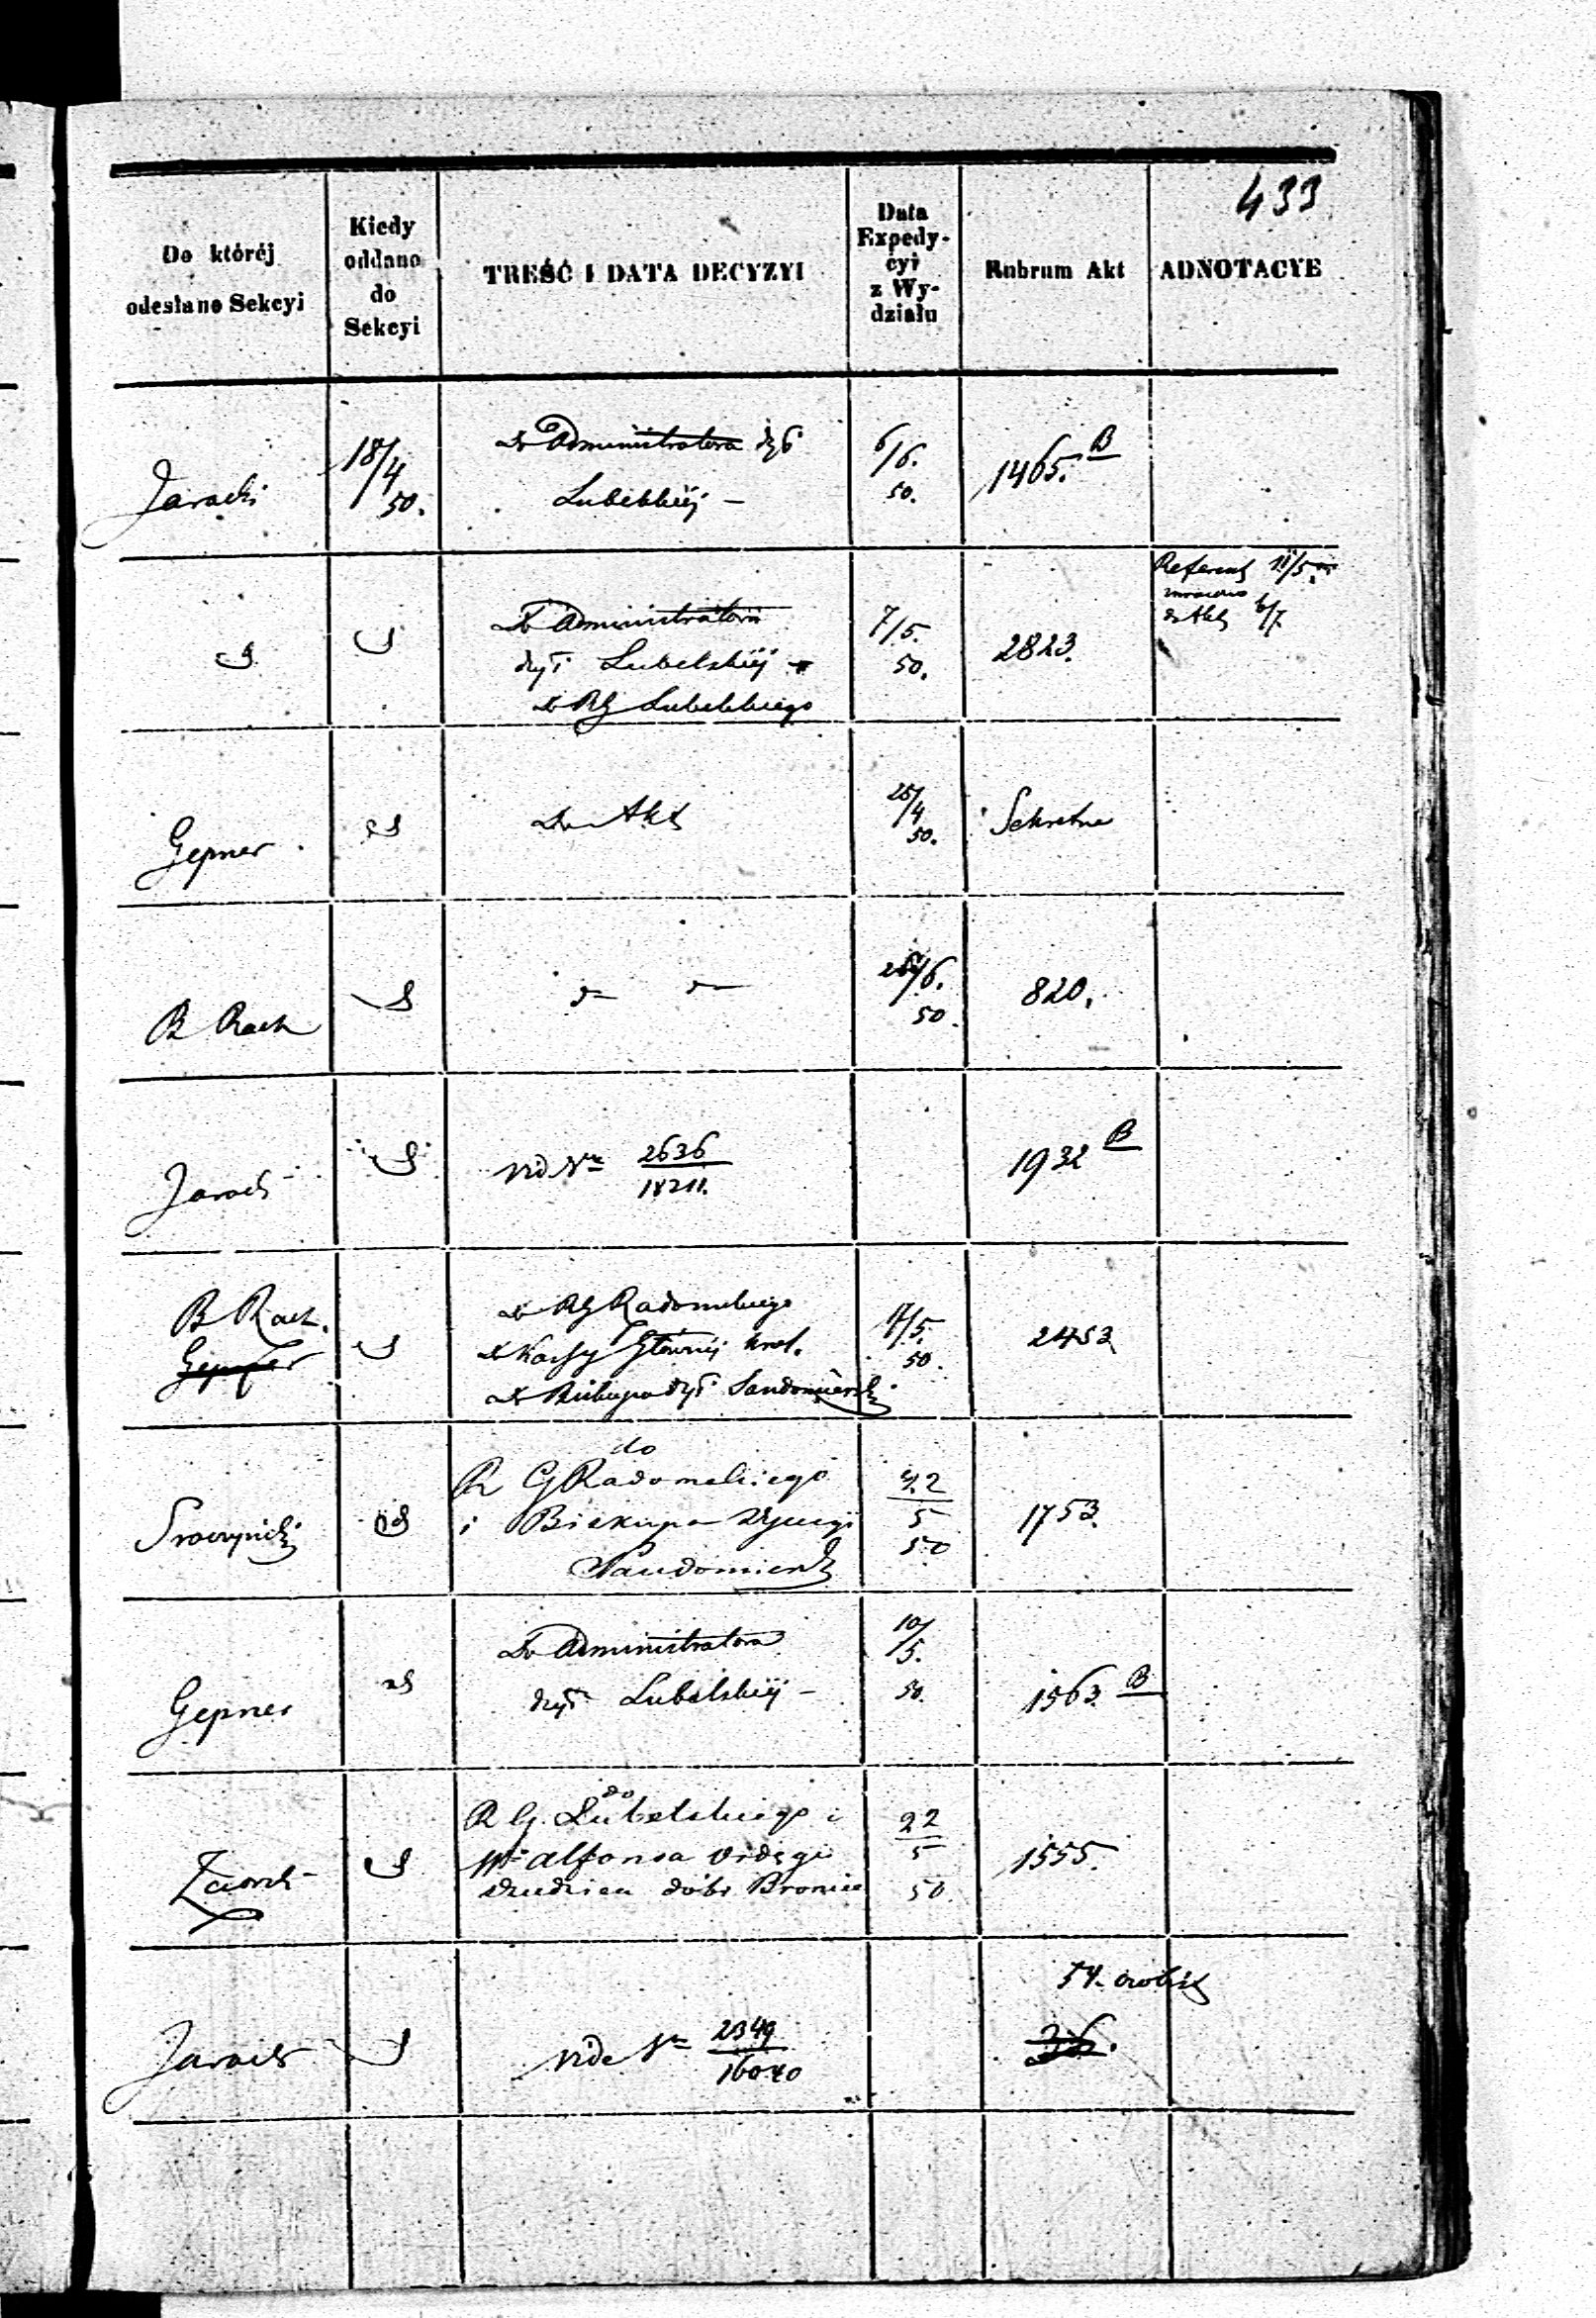 433
Do któréj
odesłano Sekcyi
Kiedy
oddano
do
Sekcyi
TREŚĆ I DATA DECYZYI
Data
Expedy-
cyi
z Wy-
działu
Rubrum Akt
ADNOTACYE
Jaracki
18/4
50.
Do Administratora dyć
Lubelskiéj –
6/6.
50.
1465. B
Do Administratora
dyć Lubelskiéj
do RG Lubelskiego
7/5.
50.
2823.
Referent 11/5
do Akt
Gepner
Do Akt
25/4
50.
Sekretne
B Rach
/6.
50.
820.
Jarack
Vid Nr 2636
18211.
1932 B
B Rach.
Gepner
do RG Radomskiego
do Kassy Głównéj Król.
do Biskupa dyć Sandomiersk
/5.
50.
2453
do
R G Radomskiego
i Biskupa Dyecezyi
Sandomiersk
5
50
1753.
Gepner
Do Administratora
dyć Lubelskiéj –
10/5.
50.
1563. B
do
R G. Lubelskiego i
Alfonsa
dóbr Bronice
22
5
50
1555.
Jarack
Vide Nr 2349
16040
54.
36.